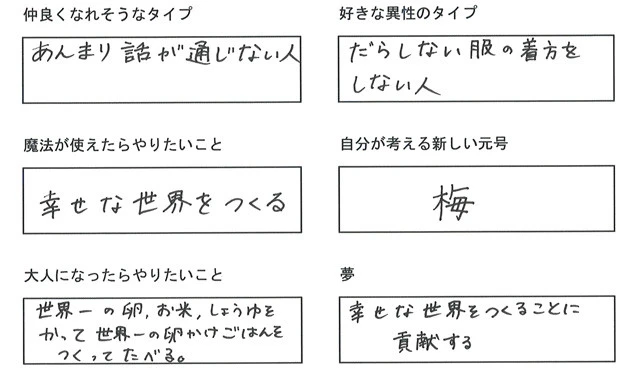 仲良くなれそうなタイプ
あんまり話が通じない人
好きな異性のタイプ
だらしない服の着方を
しない人
魔法が使えたらやりたいこと
幸せな世界をつくる
自分が考える新しい元号
梅
大人になったらやりたいこと
世界一の卵,お米,しょうゆを
かって世界一の卵かけごはんを
つくってたべる。
夢
幸せな世界をつくることに
貢献する